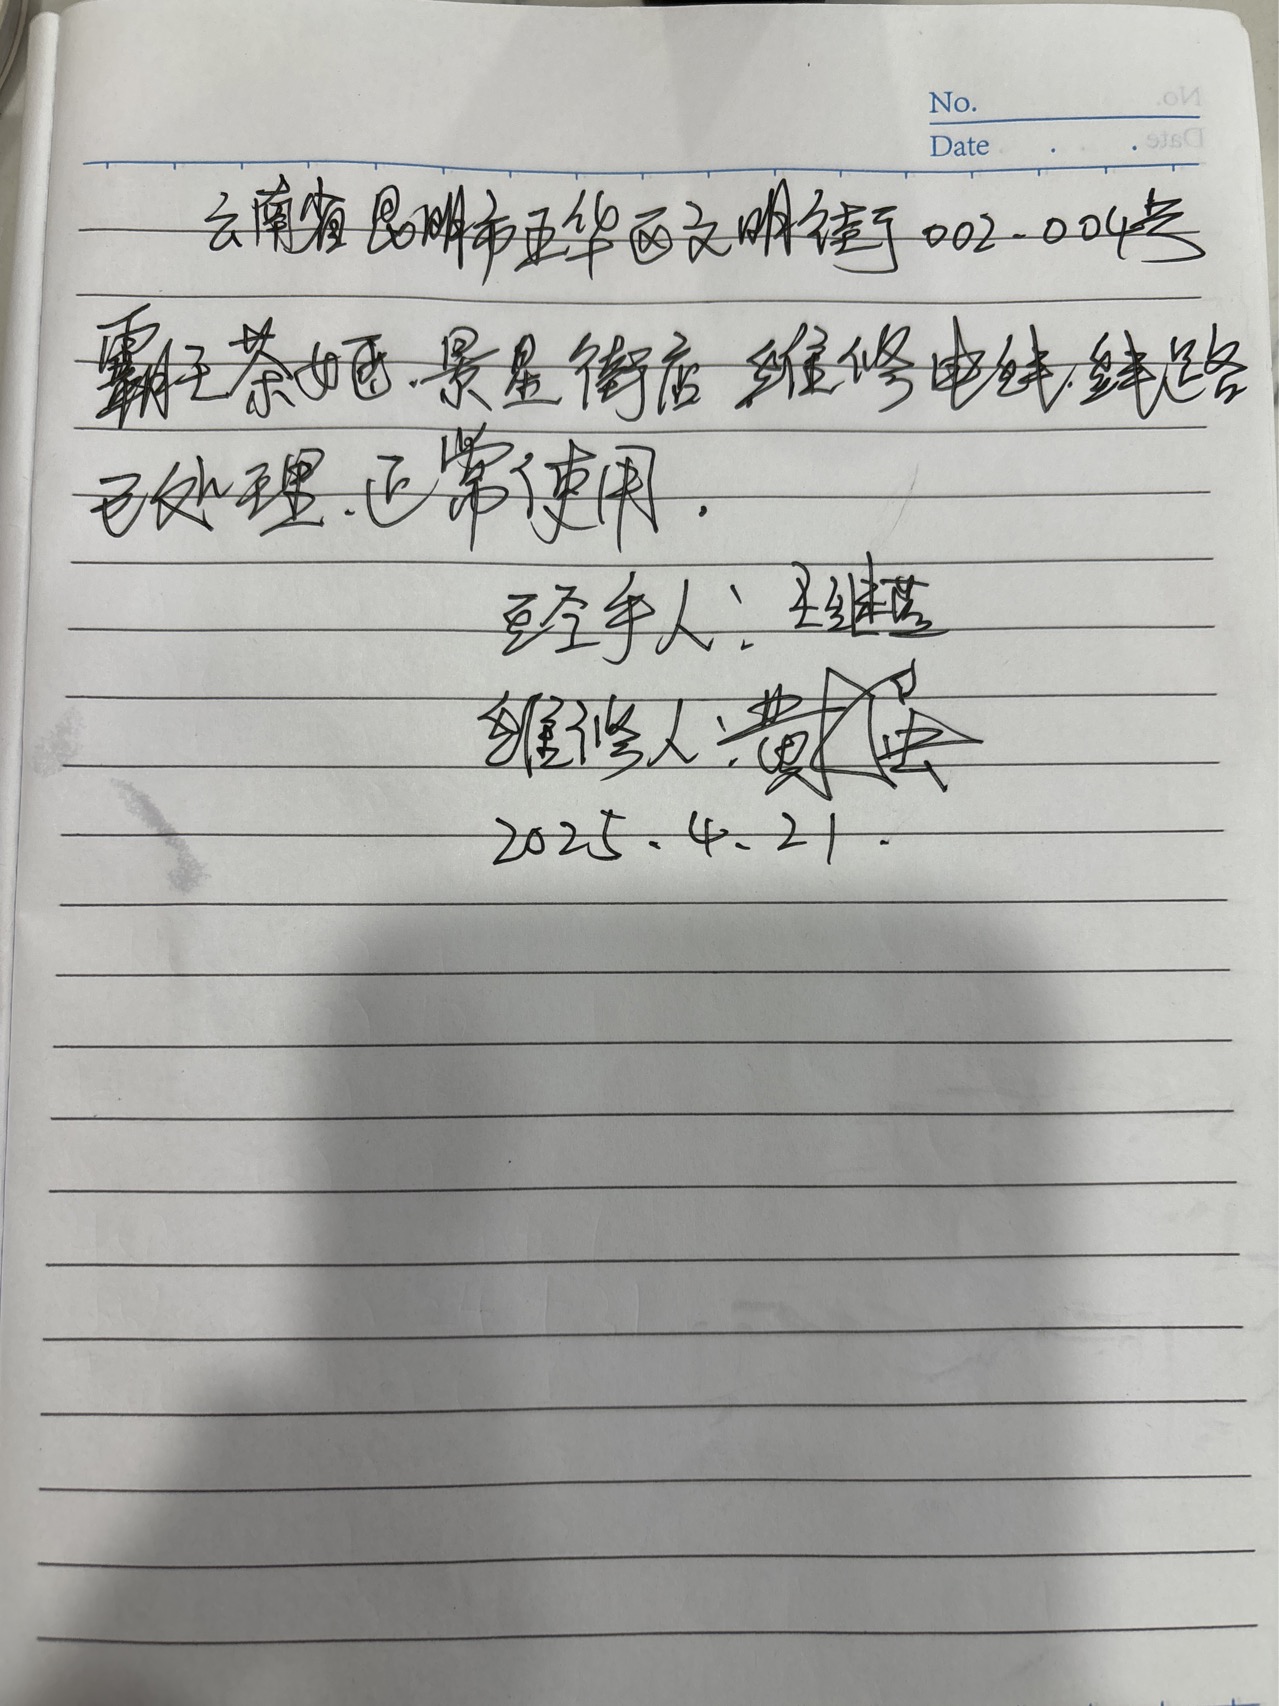 No.
Date
云南省昆明市五华区文明街002-004号
霸王茶姬.景星街店 维修电线.线路
已处理.正常使用.
经手人: 王继芸
维修人: 黄
2025.4.21.